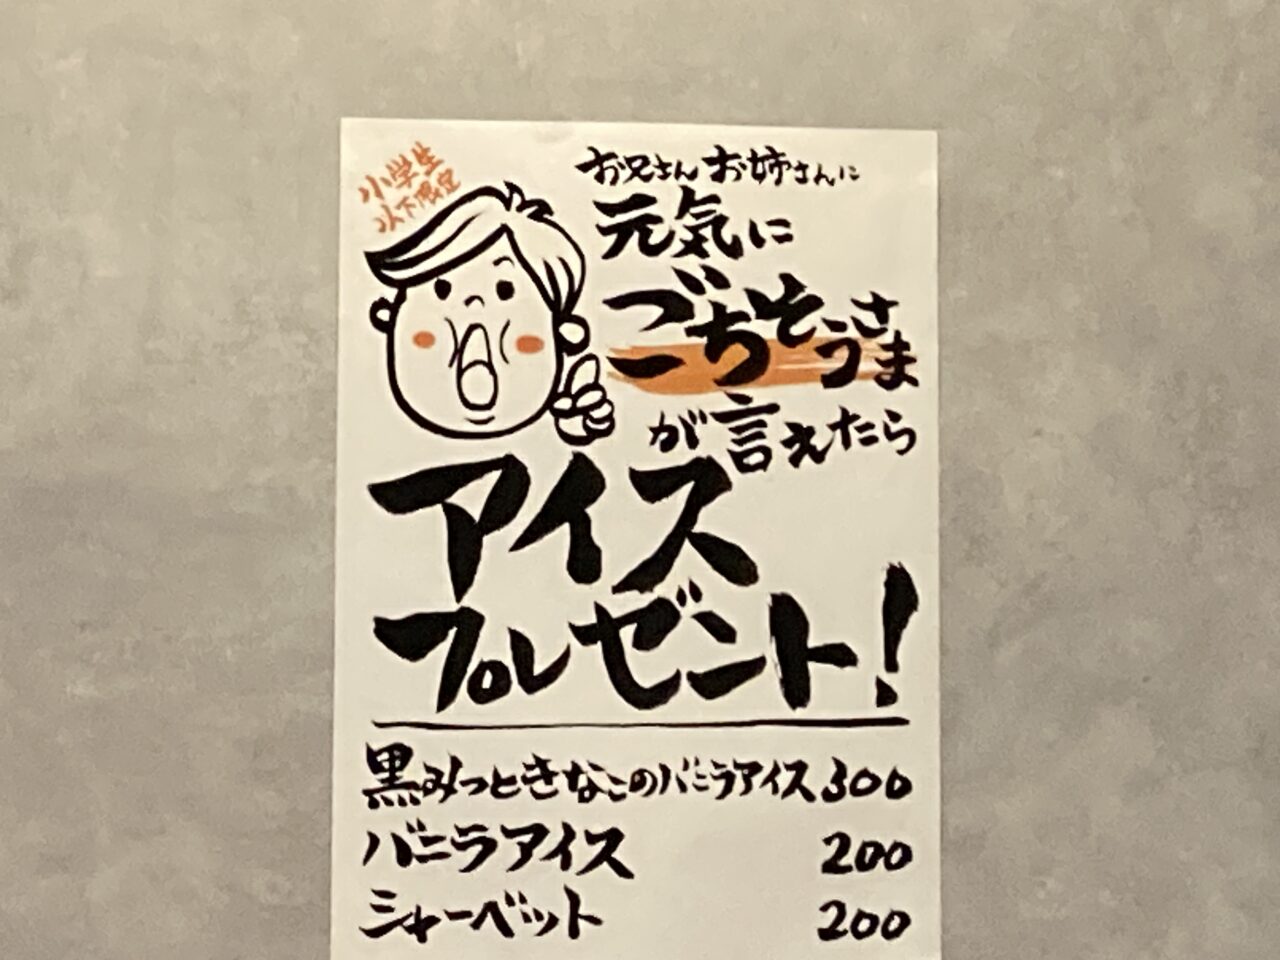 小学生
以下限定
お兄さんお姉さんに
元気に
ごちそうさま
が言えたら
アイス
プレゼント!
黒みつときなこのバニラアイス 300
バニラアイス 200
シャーベット 200